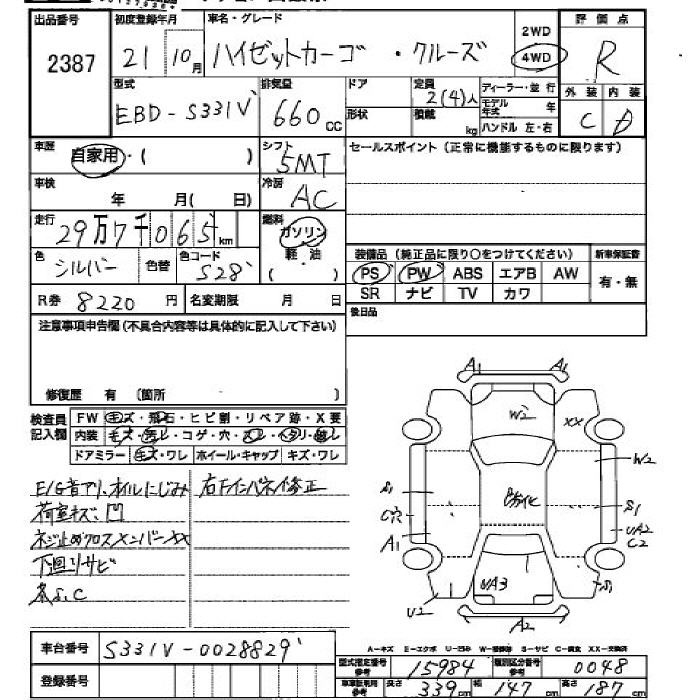 出品番号 初度登録年月 車名・グレード 2WD 評価点
2387 21 10月 ハイゼットカーゴ ・クルーズ 4WD R
型式 排気量 ドア 定員 ディーラー・並行 外装 内装
EBD-S331V 660cc 形状 2(4)人 モデル年式 年 C D
積載 kg ハンドル 左・右
車歴 自家用・( ) シフト 5MT セールスポイント(正常に機能するものに限ります)
車検 年 月( 日) 冷房 AC
走行 29万7千065km 燃料 ガソリン 軽油 ( )
色 シルバー 色替 色コード S28
装備品(純正品に限り○をつけてください) 新車保証書
PS PW ABS エアB AW 有・無
SR ナビ TV カワ
R券 8220円 名変期限 月 日 後日品
注意事項申告欄(不具合内容等は具体的に記入して下さい)
修復歴 有 〔箇所 〕
検査員記入欄 FW キズ・飛石・ヒビ割・リペア跡・X要
内装 キズ・汚レ・コゲ・穴・スレ・ヘタリ・破レ
ドアミラー キズ・ワレ ホイール・キャップ キズ・ワレ
E/G音アリ、オイルにじみ 右Fインパネ修正
荷室キズ、凹
ネジ止めクロスメンバーXX
下廻りサビ
各S.C
A1 A1
W2 XX
W2
S1 S1
C穴 UA2
A1 C2
UA3 S1
U2 A2
車台番号 S331V-0028829
登録番号
A-キズ E-エクボ U-凹み W-補修跡 S-サビ C-腐食 XX-交換済
型式指定番号 参考 15984 類別区分番号 参考 0048
車車証有用 参考 長さ 339cm 幅 147cm 高さ 187cm